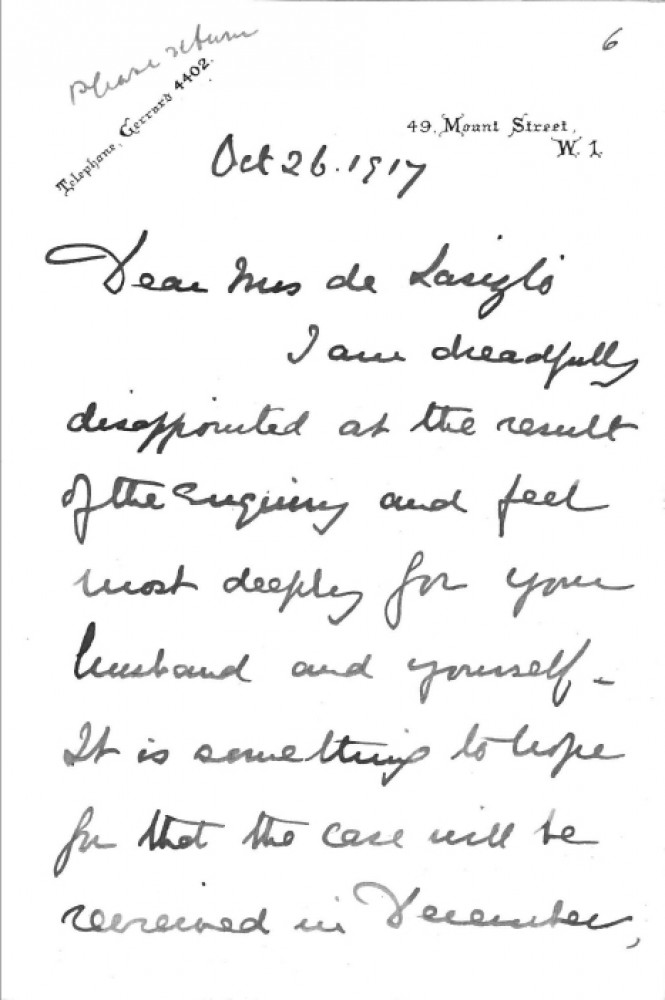 6
please return
Telephone, Gerrard 4402.
49, Mount Street,
W. 1.
Oct 26. 1917
Dear Mrs de László
I am dreadfully
disappointed at the result
of the Enquiry and feel
most deeply for your
husband and yourself -
It is something to hope
for that the case will be
reviewed in December,